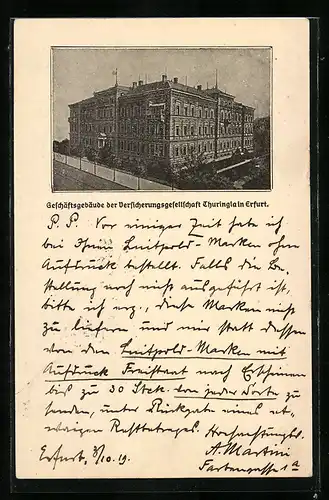 Geschäftsgebäude der Versicherungsgesellschaft Thuringia in Erfurt.
P. P. Vor einiger Zeit habe ich
bei Ihnen Luitpold-Marken ohne
Aufdruck bestellt. Falls die Be-
stellung noch nicht ausgeführt ist,
bitte ich erg., diese Marken nicht
zu liefern und mir statt dessen
von den Luitpold-Marken mit
Aufdruck Freistaat nach Erscheinen
bis zu 30 Stck. von jeder Sorte zu
senden, unter Rückgabe eines et-
waigen Restbetrages. Hochachtungsvoll
Erfurt, 8/10.19. A. Martini
Gartengasse 1a